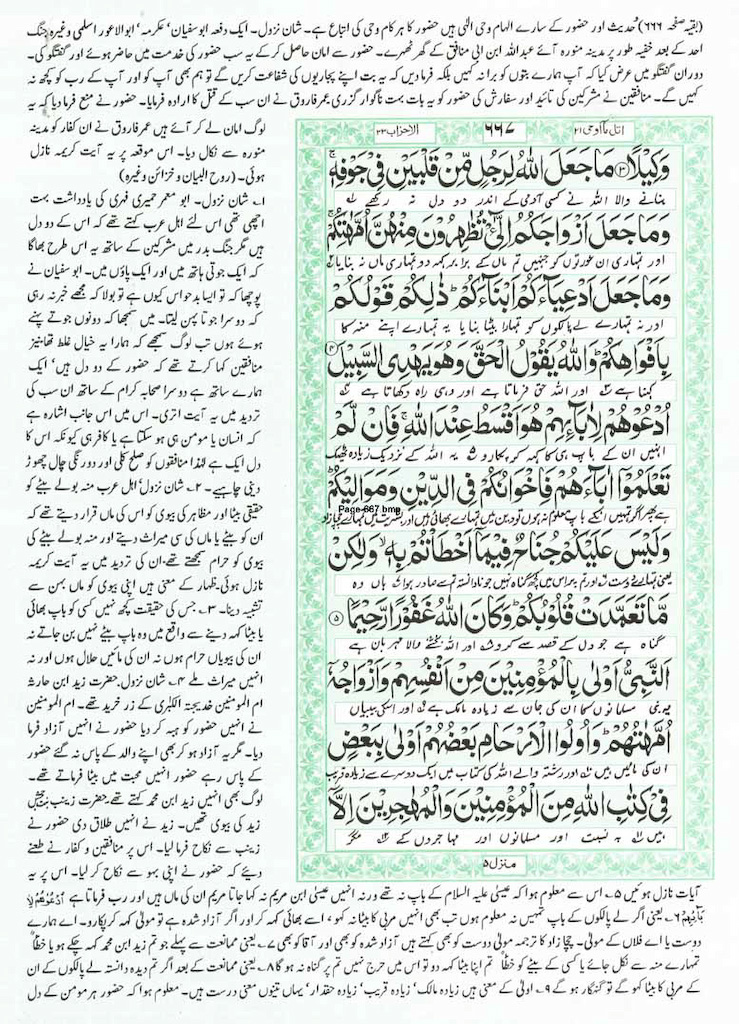 (بقیہ صفحہ ۶۶۶) حدیث اور حضور کے سارے الہام وحی الٰہی ہیں حضور کا ہر کام وحی کی اتباع ہے۔ شان نزول۔ ایک دفعہ ابوسفیان‘ عکرمہ‘ ابوالاعور اسلمی وغیرہ جنگ
احد کے بعد خفیہ طور پر مدینہ منورہ آئے عبداللہ ابن ابی منافق کے گھر ٹھہرے۔ حضور سے امان حاصل کر کے یہ سب حضور کی خدمت میں حاضر ہوئے اور گفتگو کی۔
دوران گفتگو میں عرض کیا کہ آپ ہمارے بتوں کو برا نہ کہیں بلکہ فرما دیں کہ یہ بت اپنے پجاریوں کی شفاعت کریں گے تو ہم بھی آپ کو اور آپ کے رب کو کچھ نہ
کہیں گے۔ منافقین نے مشرکین کی تائید اور سفارش کی حضور کو یہ بات بہت ناگوار گزری عمر فاروق نے ان سب کے قتل کا ارادہ فرمایا۔ حضور نے منع فرما دیا کہ یہ
لوگ امان لے کر آئے ہیں عمر فاروق نے ان کفار کو مدینہ
منورہ سے نکال دیا۔ اس موقعہ پر یہ آیت کریمہ نازل
ہوئی۔ (روح البیان و خزائن وغیرہ)
۱۔ شان نزول۔ ابو معمر حمیری فہری کی یادداشت بہت
اچھی تھی اس لئے اہل عرب کہتے تھے کہ اس کے دو دل
ہیں مگر جنگ بدر میں مشرکین کے ساتھ یہ اس طرح بھاگا
کہ ایک جوتی ہاتھ میں اور ایک پاؤں میں۔ ابو سفیان نے
پوچھا کہ تو ایسا بدحواس کیوں ہے تو بولا کہ مجھے خبر نہ رہی
کہ دوسرا جوتا پہن لیتا۔ میں سمجھا کہ دونوں جوتے پہنے
ہوئے ہوں تب لوگ سمجھے کہ ہمارا یہ خیال غلط تھا نیز
منافقین کہا کرتے تھے کہ حضور کے دو دل ہیں‘ ایک
ہمارے ساتھ ہے دوسرا صحابہ کرام کے ساتھ ان سب کی
تردید میں یہ آیت اتری۔ اس میں اس جانب اشارہ ہے
کہ انسان یا مومن ہی ہو سکتا ہے یا کافر ہی کیونکہ اس کا
دل ایک ہے لہٰذا منافقوں کو صلح کلی اور دورنگی چال چھوڑ
دینی چاہیے۔ ۲۔ شان نزول‘ اہل عرب منہ بولے بیٹے کو
حقیقی بیٹا اور مظاہر کی بیوی کو اس کی ماں قرار دیتے تھے کہ
ان کو بیٹے یا ماں کی سی میراث دیتے اور منہ بولے بیٹے کی
بیوی کو حرام سمجھتے تھے۔ ان کی تردید میں یہ آیت کریمہ
نازل ہوئی۔ ظہار کے معنی ہیں اپنی بیوی کو ماں بہن سے
تشبیہ دینا۔ ۳۔ جس کی حقیقت کچھ نہیں کسی کو باپ بھائی
یا بیٹا کہہ دینے سے واقع میں وہ باپ بیٹے نہیں بن جاتے نہ
ان کی بیویاں حرام ہوں نہ ان کی مائیں حلال ہوں اور نہ
انہیں میراث ملے ۴۔ شان نزول حضرت زید ابن حارثہ
ام المومنین خدیجتہ الکبریٰ کے زر خرید تھے۔ ام المومنین
نے انہیں حضور کو ہبہ کر دیا حضور نے انہیں آزاد فرما
دیا۔ مگر یہ آزاد ہو کر بھی اپنے والد کے پاس نہ گئے حضور
کے پاس رہے حضور انہیں محبت میں بیٹا فرماتے تھے۔
لوگ بھی انہیں زید ابن محمد کہتے تھے حضرت زینب بنت جحش
زید کی بیوی تھیں۔ زید نے انہیں طلاق دی حضور نے
زینب سے نکاح فرما لیا۔ اس پر منافقین و کفار نے طعنے
دیئے کہ حضور نے اپنی بہو سے نکاح کر لیا۔ اس پر یہ
اتل مآ اوحی ۲۱
۶۶۷
الاحزاب ۳۳
وَكِيْلًا ۝۳ مَا جَعَلَ اللّٰهُ لِرَجُلٍ مِّنْ قَلْبَيْنِ فِيْ جَوْفِهٖ ۚ
بنانے والا اللہ نے کسی آدمی کے اندر دو دل نہ رکھے ۱؎
وَمَا جَعَلَ اَزْوَاجَكُمُ الّٰٓـِٔيْ تُظٰهِرُوْنَ مِنْهُنَّ اُمَّهٰتِكُمْ ۚ
اور تمہاری ان عورتوں کو جنہیں تم ماں کے برابر کہہ دو تمہاری ماں نہ بنایا ۲؎
وَمَا جَعَلَ اَدْعِيَآءَكُمْ اَبْنَآءَكُمْ ؕ ذٰلِكُمْ قَوْلُكُمْ
اور نہ تمہارے لے پالکوں کو تمہارا بیٹا بنایا یہ تمہارے اپنے منہ کا
بِاَفْوَاهِكُمْ ؕ وَاللّٰهُ يَقُوْلُ الْحَقَّ وَهُوَ يَهْدِي السَّبِيْلَ ۝۴
کہنا ہے ۳؎ اور اللہ حق فرماتا ہے اور وہی راہ دکھاتا ہے ۴؎
اُدْعُوْهُمْ لِاٰبَآئِهِمْ هُوَ اَقْسَطُ عِنْدَ اللّٰهِ ۚ فَاِنْ لَّمْ
انہیں ان کے باپ ہی کا کہہ کر پکارو ۵؎ یہ اللہ کے نزدیک زیادہ ٹھیک
تَعْلَمُوْٓا اٰبَآءَهُمْ فَاِخْوَانُكُمْ فِي الدِّيْنِ وَمَوَالِيْكُمْ ؕ
Page-667.bmp
ہے پھر اگر تمہیں انکے باپ معلوم نہ ہوں تو دین میں تمہارے بھائی ہیں اور بشریت میں تمہارے چچا زاد
وَلَيْسَ عَلَيْكُمْ جُنَاحٌ فِيْمَآ اَخْطَاْتُمْ بِهٖ ۙ وَلٰكِنْ
یعنی تمہارے دوست ۶؎ اور تم پر اس میں کچھ گناہ نہیں جو نادانستہ تم سے صادر ہوا ۷؎ ہاں وہ
مَّا تَعَمَّدَتْ قُلُوْبُكُمْ ؕ وَكَانَ اللّٰهُ غَفُوْرًا رَّحِيْمًا ۝۵
گناہ ہے جو دل کے قصد سے کرو ۸؎ اور اللہ بخشنے والا مہربان ہے
اَلنَّبِيُّ اَوْلٰى بِالْمُؤْمِنِيْنَ مِنْ اَنْفُسِهِمْ وَاَزْوَاجُهٗٓ
یہ نبی مسلمانوں کا ان کی جان سے زیادہ مالک ہے ۹؎ اور اسکی بیبیاں
اُمَّهٰتُهُمْ ؕ وَاُولُوا الْاَرْحَامِ بَعْضُهُمْ اَوْلٰى بِبَعْضٍ
ان کی مائیں ہیں اور رشتہ والے اللہ کی کتاب میں ایک دوسرے سے زیادہ قریب
فِيْ كِتٰبِ اللّٰهِ مِنَ الْمُؤْمِنِيْنَ وَالْمُهٰجِرِيْنَ اِلَّآ
ہیں بہ نسبت اور مسلمانوں اور مہاجروں کے مگر
منزل ۵
آیات نازل ہوئیں ۵۔ اس سے معلوم ہوا کہ عیسیٰ علیہ السلام کے باپ نہ تھے ورنہ انہیں عیسیٰ ابن مریم نہ کہا جاتا مریم ان کی ماں ہیں اور رب فرماتا ہے اُدْعُوْهُمْ لِاٰ
بَآئِهِمْ ۶۔ یعنی اگر لے پالکوں کے باپ تمہیں نہ معلوم ہوں تب بھی انہیں مربی کا بیٹا نہ کہو‘ اسے بھائی کہہ کر اور اگر آزاد شدہ ہے تو مولیٰ کہہ کر پکارو۔ اے ہمارے
دوست یا اے فلاں کے مولیٰ۔ چچا زاد کا ترجمہ مولیٰ دوست کو بھی کہتے ہیں آزاد شدہ کو بھی اور آقا کو بھی ۷۔ یعنی ممانعت سے پہلے جو تم زید ابن محمد کہہ چکے ہو یا خطأً
تمہارے منہ سے نکل جائے یا کسی کے بیٹے کو خطأً تم اپنا بیٹا کہہ دو تو اس میں حرج نہیں تم پر گناہ نہ ہو گا ۸۔ یعنی ممانعت کے بعد اگر تم دیدہ دانستہ لے پالکوں کے ان
کے مربی کا بیٹا کہو گے تو گنہگار ہو گے ۹۔ اولیٰ کے معنی ہیں زیادہ مالک‘ زیادہ قریب‘ زیادہ حقدار‘ یہاں تینوں معنی درست ہیں۔ معلوم ہوا کہ حضور ہر مومن کے دل